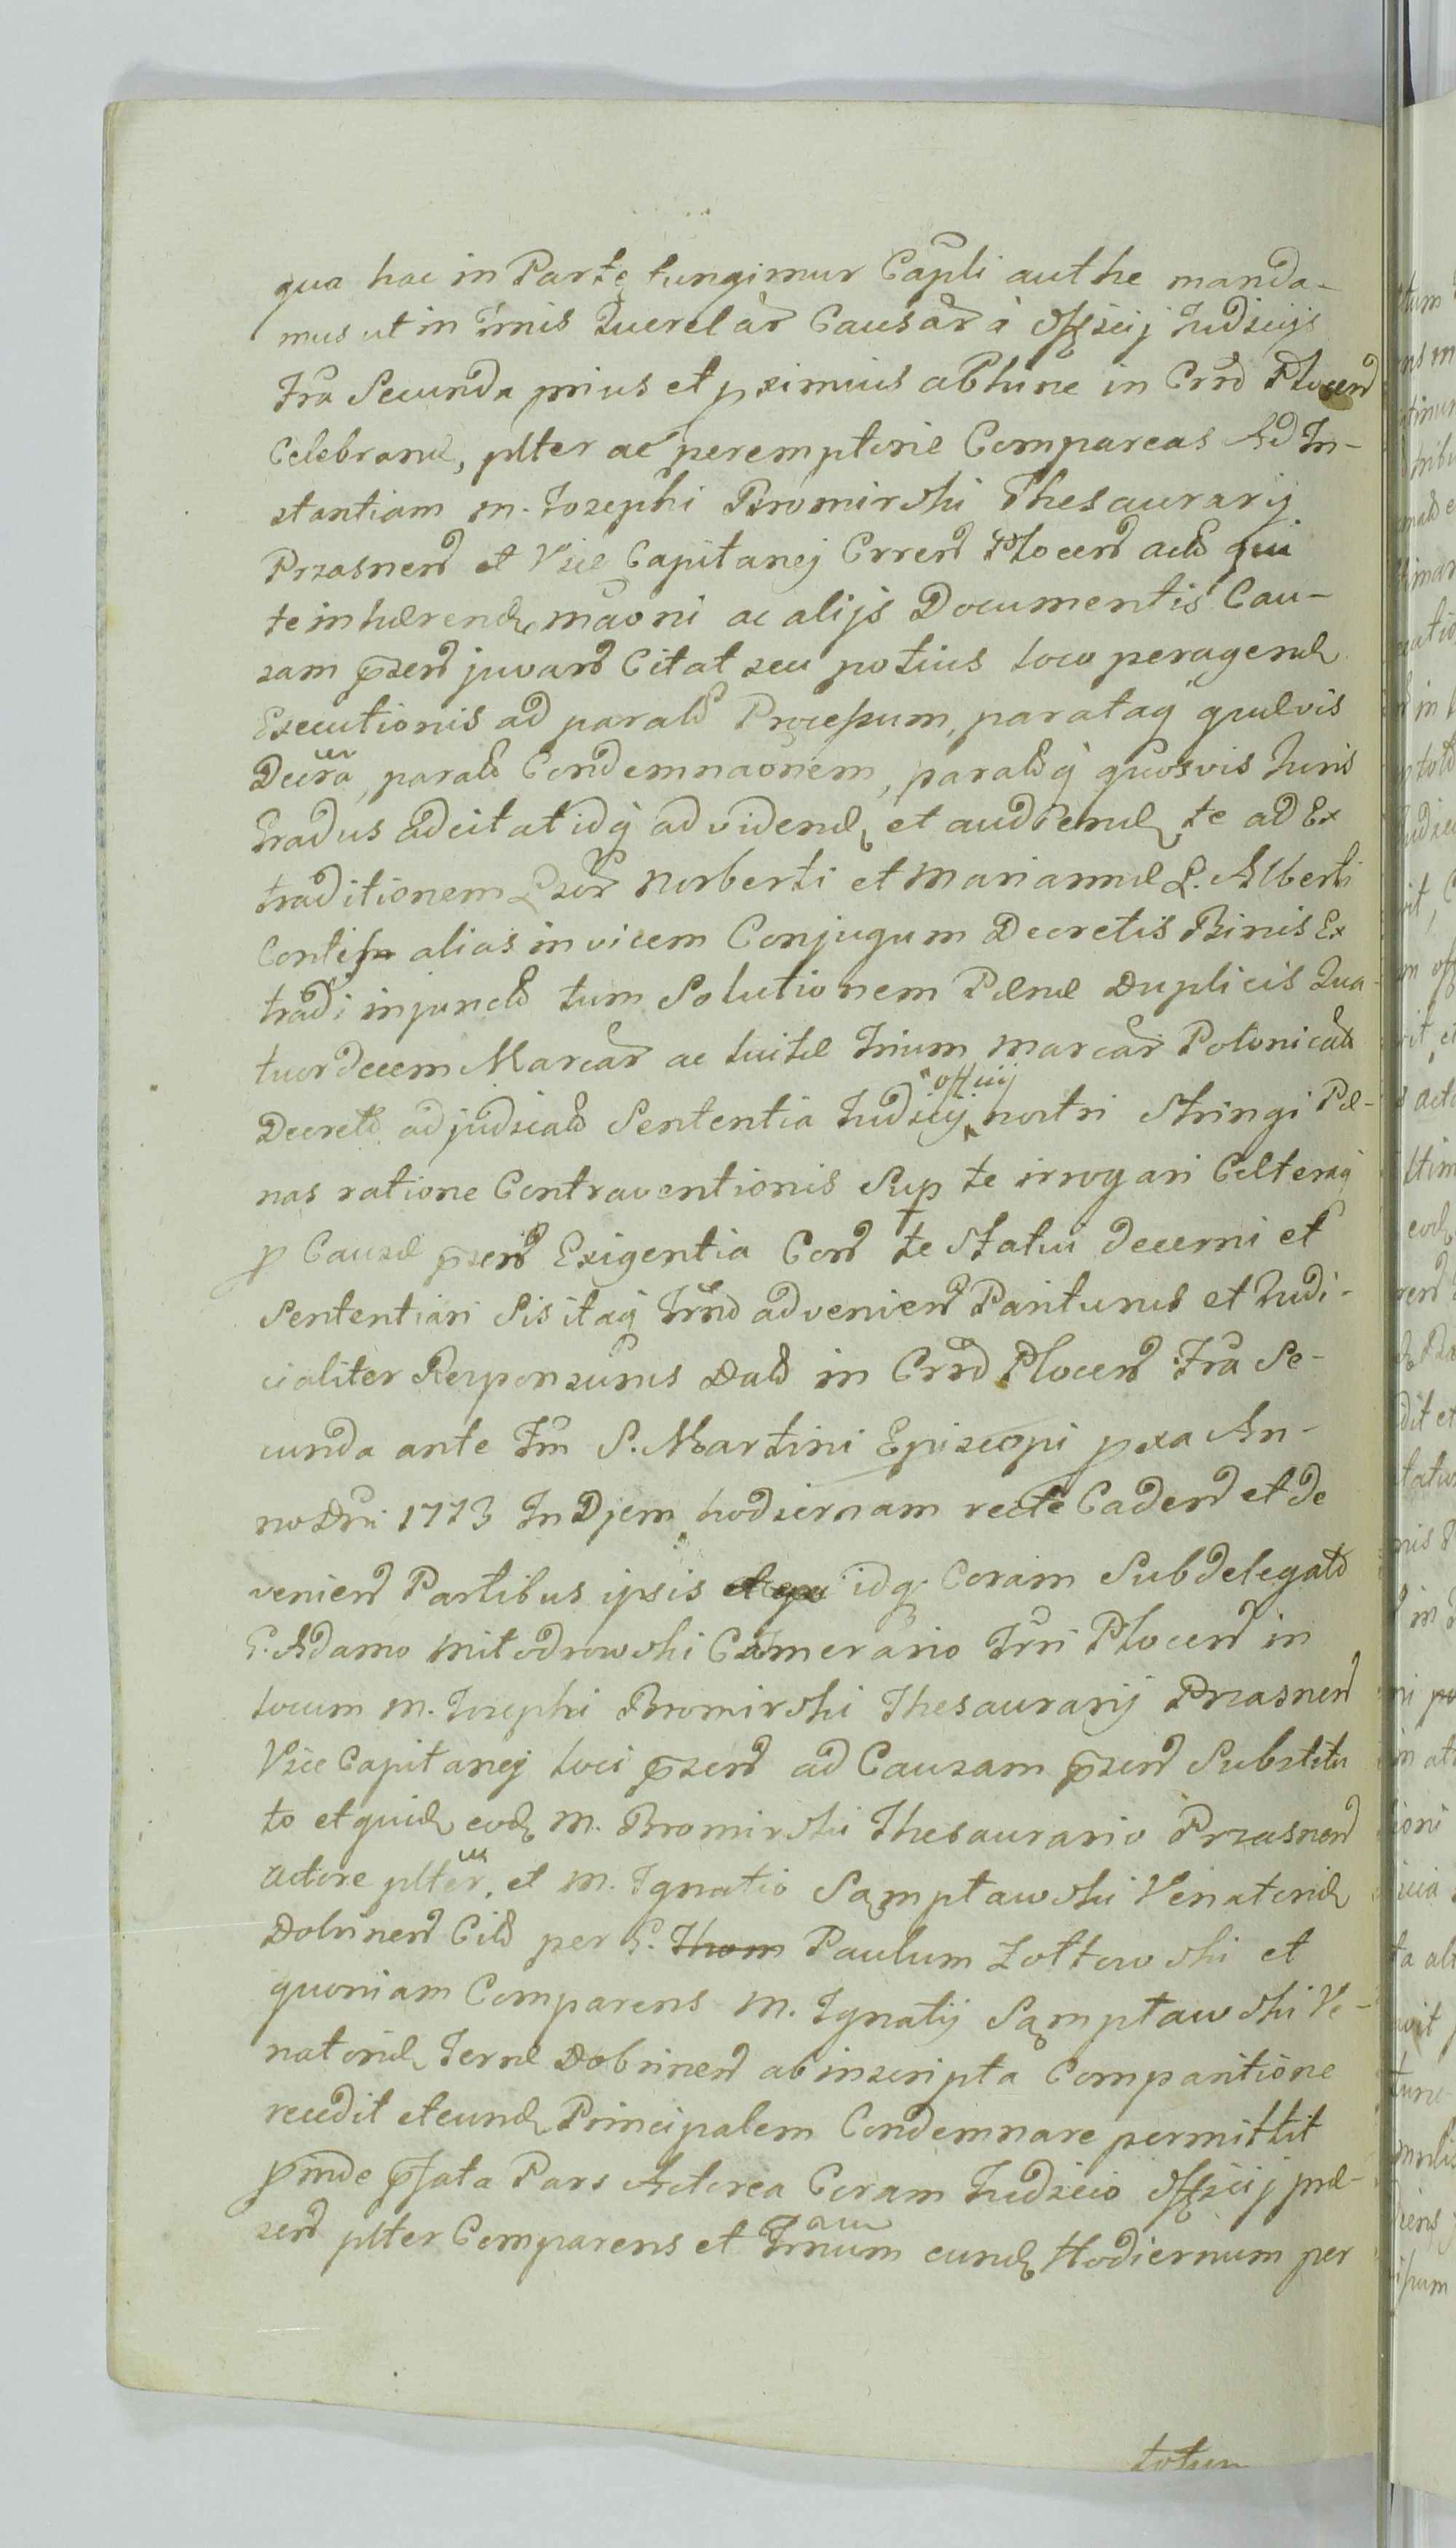 qua hac in Parte fungimur Capli autthe manda-
mus ut in Trnis Querelar Causar à Officij Judicijs
Fra Secunda prius et pximius abhinc in Crrd Plocen
Celebrand, plter ac peremptorie Compareas Ad In-
stantiam M. Josephi Bromirski Thesaurarij
Przasnen et Vice Capitanej Crren Plocen act qui
te inhærend maoni ac alijs Documentis Cau-
sam pzen juvan Citat seu potius loco peragend
Executionis ad parat Processum, parataq quævis
Decra, parat Condemnaonem, paratq quosvis Juris
Gradus adcitat idq ad vidend et audiend te ad Ex
traditionem Gsor Norberti et Mariannæ G. Alberti
alias invicem Conjugum Decretis Binis Ex
tradi injunct tum Solutionem Pænæ Duplicis Qua-
tuordecem Marcar ac luitæ Trium Marcar Polonical
officij
Decret adjudicat Sententia Judicij nostri Stringi Pæ-
nas ratione Contraventionis Sup te irrogari Cæteraq
p Causæ pzen Exigentia Con te Statui decerni et
Sententiari Sis itaq Trnd advenien Pariturus et Judi-
cialiter Responsurus Dat in Crrd Plocen Fra Se-
cunda ante Fm S. Martini Episcopi pxa An-
no Dni 1773 In Djem hodiernam recte Caden et de
venien Partibus ipsis idq Coram Subdelegat
G. Adamo Mitodrowski Camerario Trri Plocen in
locum M. Josephi Bromirski Thesaurarij Przasnen
Vice Capitanej loci pzen ad Causam pzen Substitu
to et quid eod M. Bromirski Thesaurario Przasnen
Actore plter, et M. Ignatio Sąmpławski Venatorid
Dobrinen Cit per G. Thom Paulum Zołtowski et
quoniam Comparens M. Ignatij Sąmpławski Ve-
natorid Terræ Dobrinen ab inscripta Comparitione
recedit et eund Principalem Condemnare permittit
pinde pfata Pars Actorea Coram Judicio Officij præ-
sen plter Comparens et Trnum eund Hodiernum per
totum